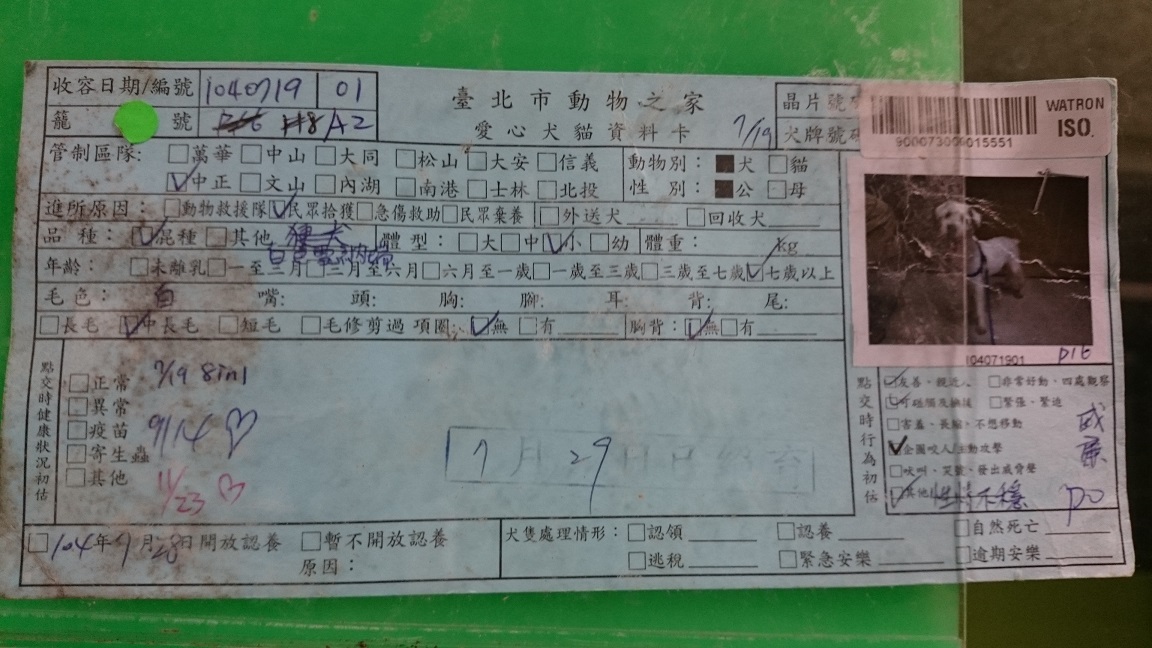 收容日期/編號 1040719 01
籠 號 A2
臺北市動物之家
愛心犬貓資料卡 7/19
晶片號
犬牌號碼
WATRON
ISO.
900073000015551
管制區隊: □萬華 □中山 □大同 □松山 □大安 □信義
☑中正 □文山 □內湖 □南港 □士林 □北投
動物別: ■犬 □貓
性 別: ■公 □母
進所原因: □動物救援隊 ☑民眾拾獲 □急傷救助 □民眾棄養 □外送犬 □回收犬
品 種: ☑混種 □其他 體 型: □大 □中 ☑小 □幼 體重: kg
年齡: □未離乳 □一至三月 □三月至六月 □六月至一歲 □一歲至三歲 □三歲至七歲 ☑七歲以上
毛色: 白 嘴: 頭: 胸: 腳: 耳: 背: 尾:
□長毛 ☑中長毛 □短毛 □毛修剪過 項圈: ☑無 □有 胸背: ☑無 □有
104071901
點交時健康狀況初估
□正常 7/19 8in1
□異常
□疫苗 9/14 ♡
□寄生蟲
□其他 11/23 ♡
7月29日
點交時行為初估
☑友善、親近人 □非常好動、四處觀察
☑可碰觸及 □緊張、緊迫
□害羞、畏縮、不想移動
☑企圖咬人/主動攻擊
□吠叫、哭號、發出威脅聲
☑其他 不穩
□104年7月28日開放認養 □暫不開放認養
原因:
犬隻處理情形: □認領 □認養 □自然死亡
□逃稅 □緊急安樂 □逾期安樂